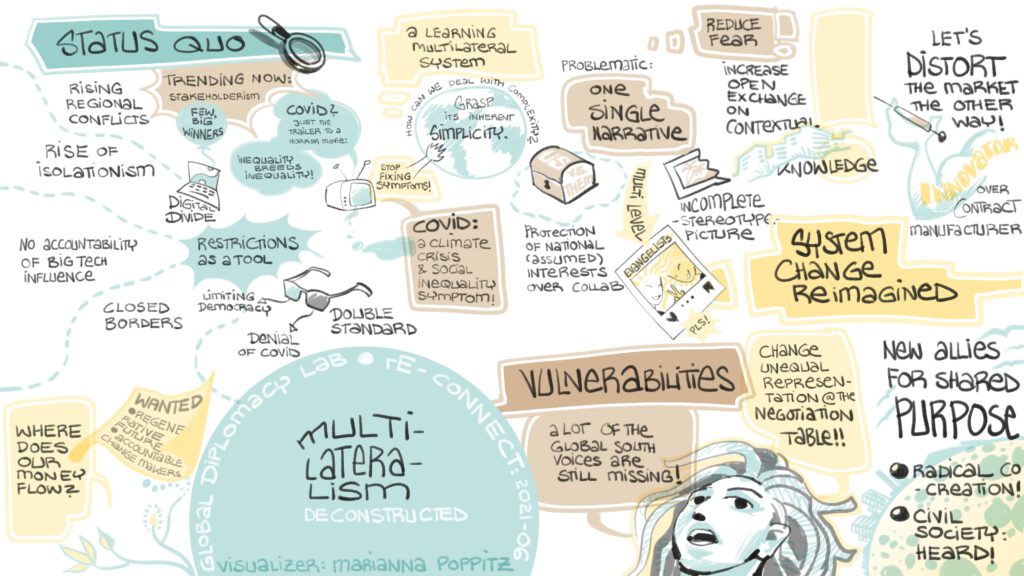 STATUS QUO
RISING
REGIONAL
CONFLICTS
TRENDING NOW:
STAKEHOLDERISM
FEW, BIG
WINNERS
COVID?
JUST THE
TRAILER TO A
HORROR MOVIE!
INEQUALITY
BREEDS
INEQUALITY!
RISE OF
ISOLATIONISM
DIGITAL
DIVIDE
NO ACCOUNTABILITY
OF BIG TECH
INFLUENCE
RESTRICTIONS
AS A TOOL
CLOSED
BORDERS
LIMITING
DEMOCRACY
DENIAL
OF COVID
DOUBLE
STANDARD
A LEARNING
MULTILATERAL
SYSTEM
HOW CAN WE DEAL WITH COMPLEXITY?
GRASP
ITS INHERENT
SIMPLICITY.
STOP
FIXING
SYMPTOMS!
COVID:
A CLIMATE
CRISIS
& SOCIAL
INEQUALITY
SYMPTOM!
PROBLEMATIC:
ONE
SINGLE
NARRATIVE
US
VS. THEM
PROTECTION
OF NATIONAL
(ASSUMED)
INTERESTS
OVER COLLAB
MULTI LEVEL
EVANGELISTS
PLS!
REDUCE
FEAR
INCREASE
OPEN
EXCHANGE
ON
CONTEXTUAL
KNOWLEDGE
INCOMPLETE
-STEREOTYPE-
PICTURE
LET'S
DISTORT
THE MARKET
THE OTHER
WAY!
INNOVATOR
OVER
CONTRACT
MANUFACTURER
SYSTEM
CHANGE
REIMAGINED
WHERE
DOES
OUR
MONEY
FLOW?
WANTED
REGENE
RATIVE
FUTURE
ACCOUNTABLE
CHANGE MAKERS
GLOBAL DIPLOMACY LAB • RE-CONNECT: 2021-06
MULTI-
LATERA-
LISM
DECONSTRUCTED
VISUALIZER: MARIANNA POPPITZ
VULNERABILITIES
A LOT OF THE
GLOBAL SOUTH
VOICES ARE
STILL MISSING!
CHANGE
UNEQUAL
REPRESEN-
TATION @ THE
NEGOTIATION
TABLE!!
NEW ALLIES
FOR SHARED
PURPOSE
• RADICAL CO
-CREATION!
• CIVIL
SOCIETY:
HEARD!